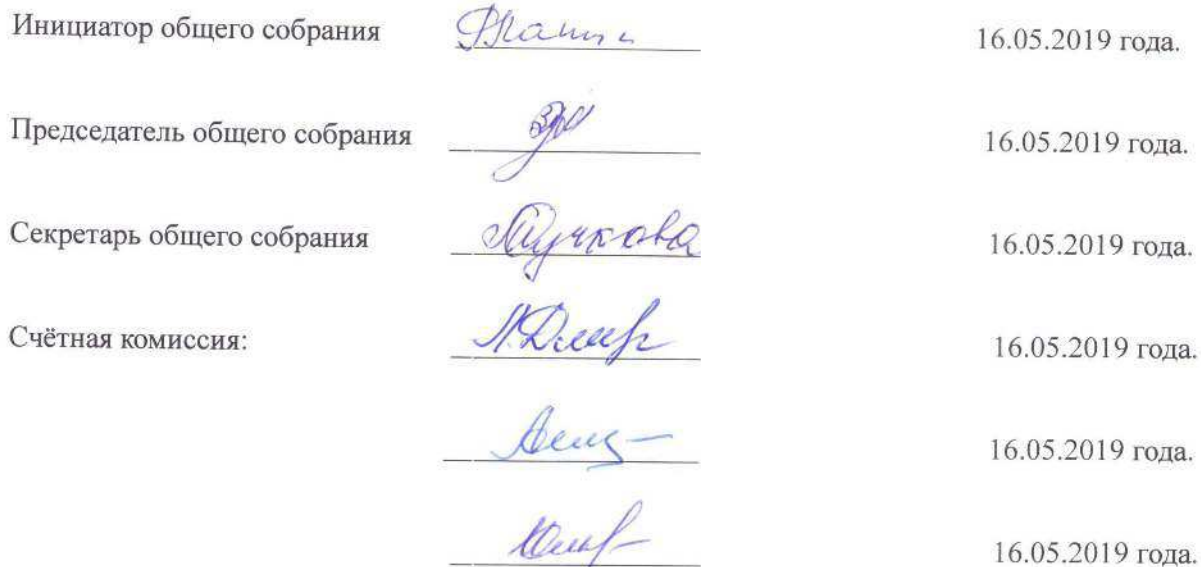 Инициатор общего собрания 16.05.2019 года.
Председатель общего собрания 16.05.2019 года.
Секретарь общего собрания Тучкова 16.05.2019 года.
Счётная комиссия: 16.05.2019 года.
16.05.2019 года.
16.05.2019 года.